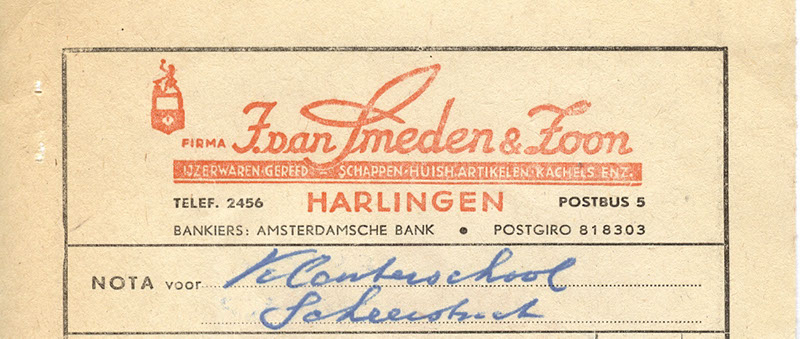 FIRMA J. van Smeden & Zoon
IJZERWAREN-GEREED — SCHAPPEN-HUISH. ARTIKELEN-KACHELS ENZ.
TELEF. 2456 HARLINGEN POSTBUS 5
BANKIERS: AMSTERDAMSCHE BANK • POSTGIRO 818303
NOTA voor Kleuterschool